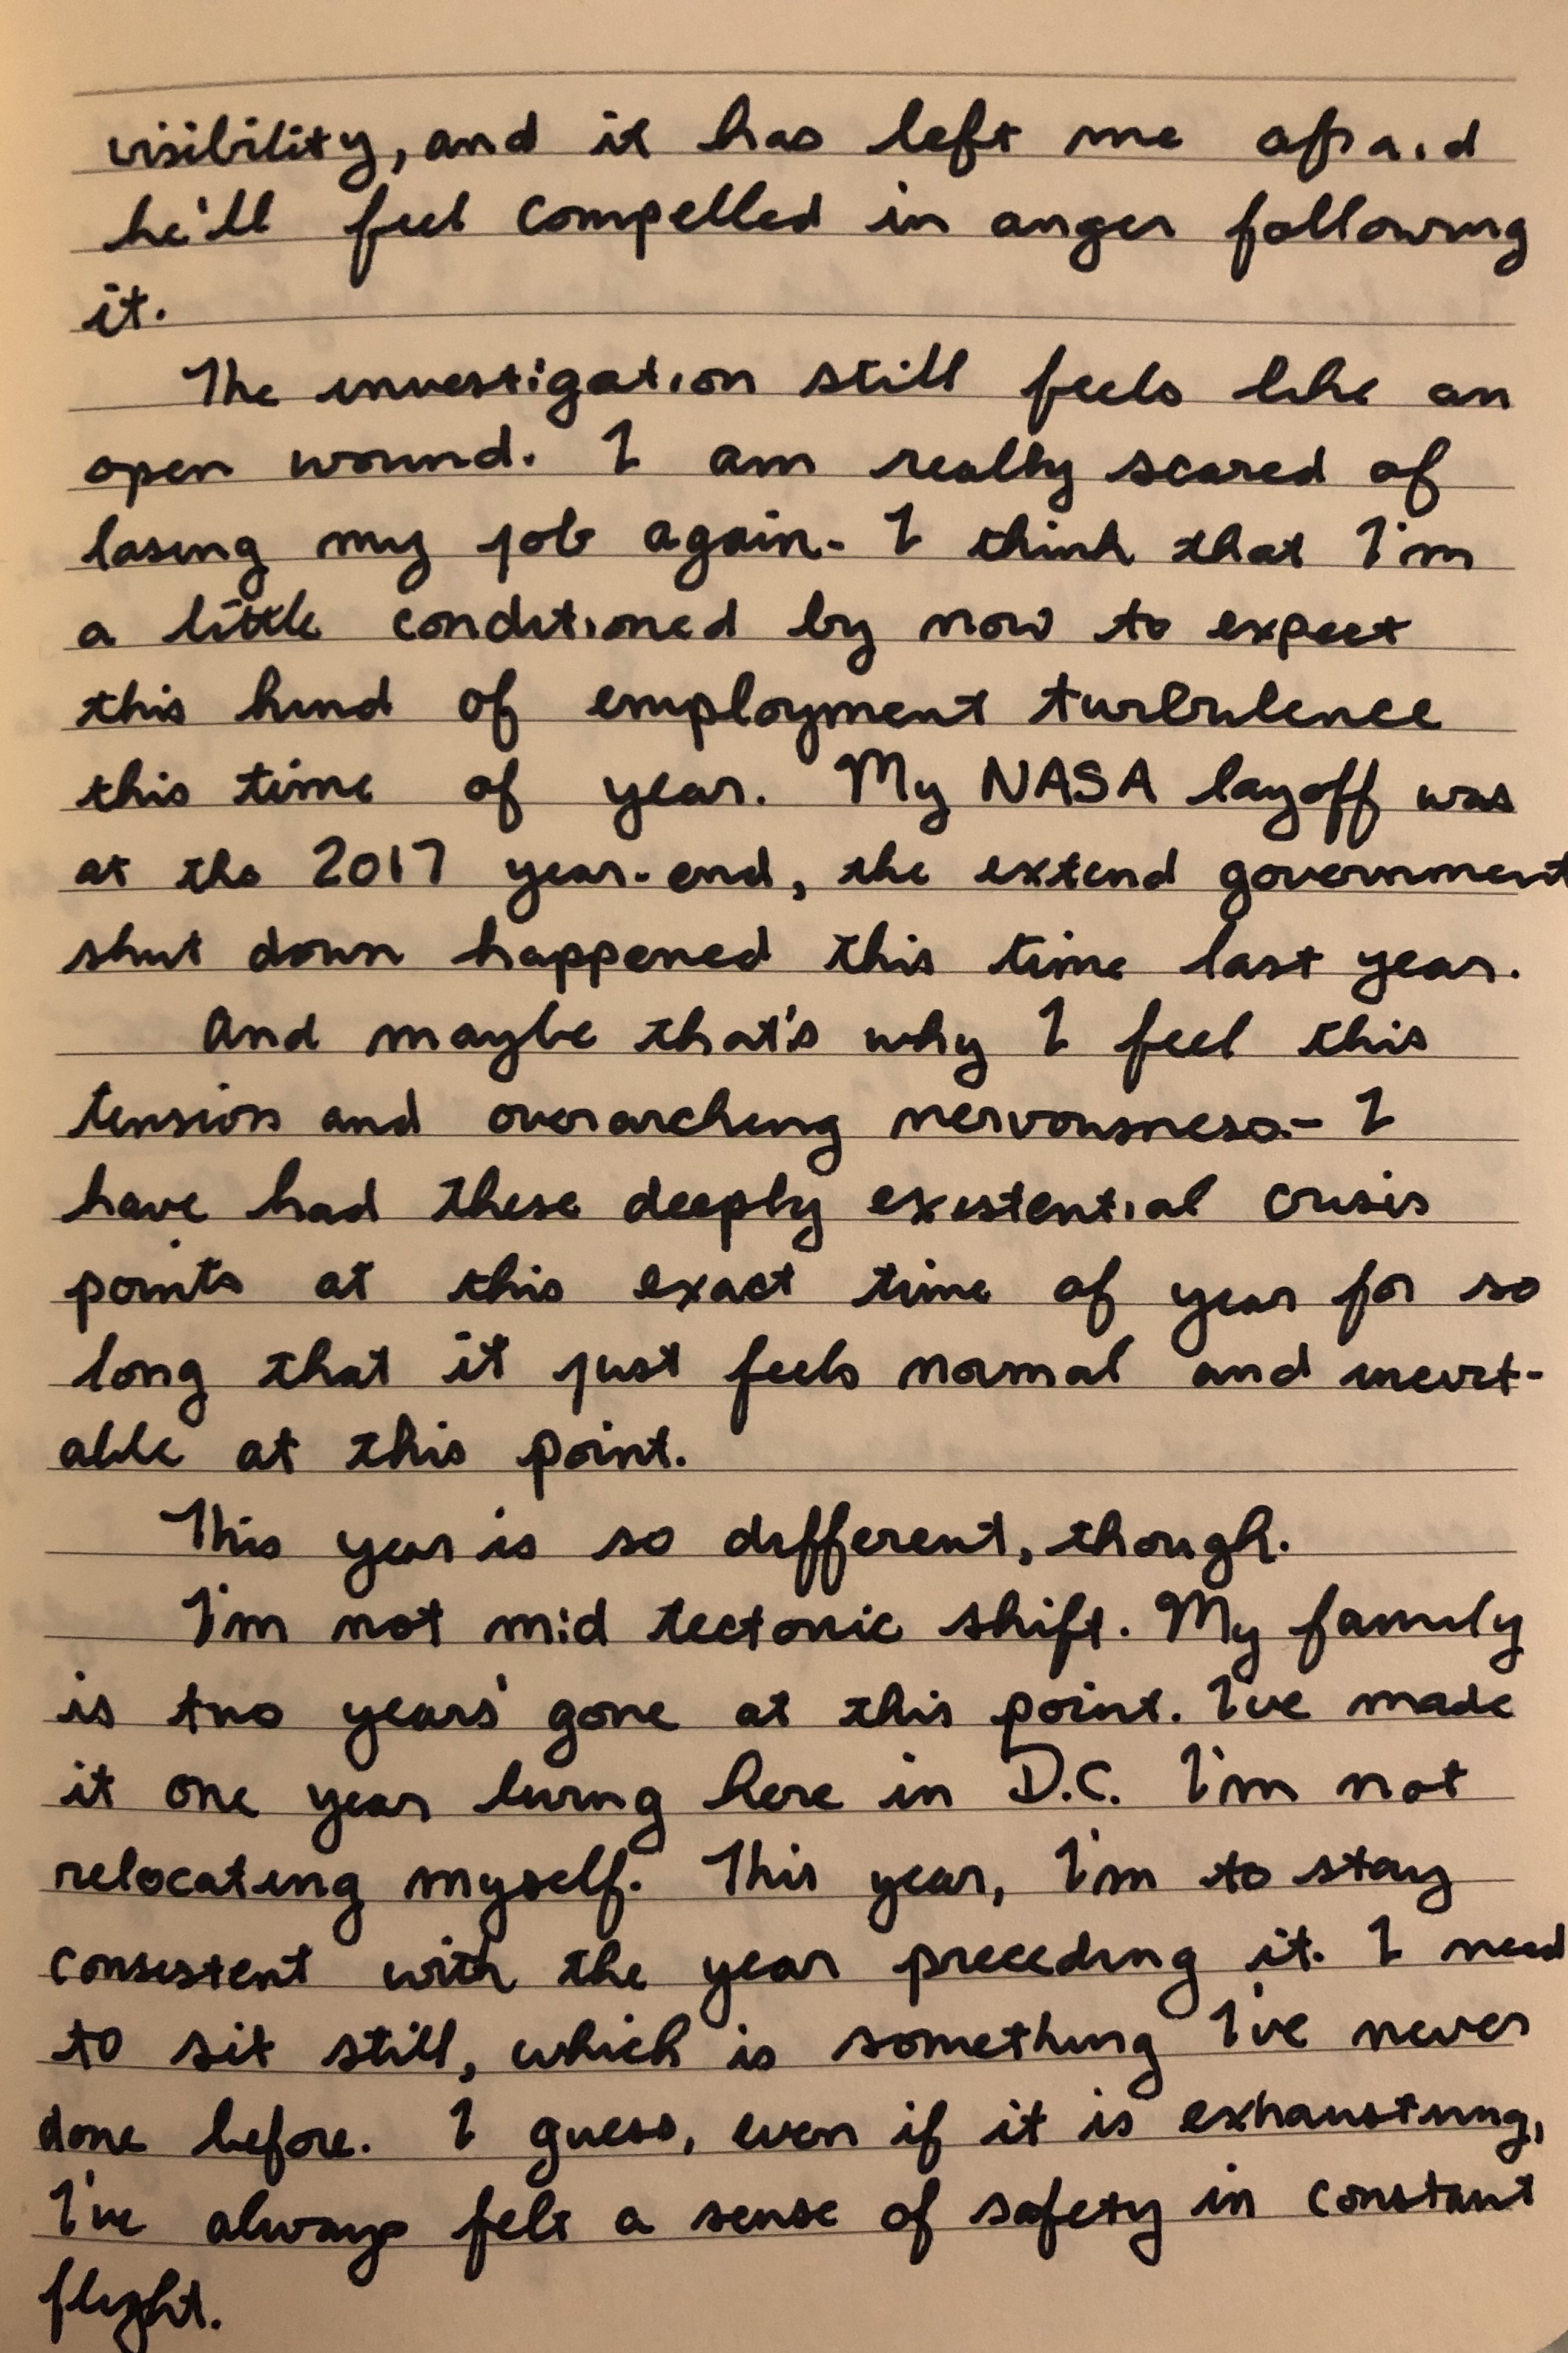 visibility, and it has left me afraid
he'll feel compelled in anger following
it.
The investigation still feels like an
open wound. I am really scared of
losing my job again- I think that I'm
a little conditioned by now to expect
this kind of employment turbulence
this time of year. My NASA layoff was
at the 2017 year-end, the extend government
shut down happened this time last year.
And maybe that's why I feel this
tension and overarching nervousness.- I
have had these deeply existential crisis
points at this exact time of year for so
long that it just feels normal and inevit-
able at this point.
This year is so different, though.
I'm not mid tectonic shift. My family
is two years' gone at this point. I've made
it one year living here in D.C. I'm not
relocating myself. This year, I'm to stay
consistent with the year preceding it. I need
to sit still, which is something I've never
done before. I guess, even if it is exhausting,
I've always felt a sense of safety in constant
flight.